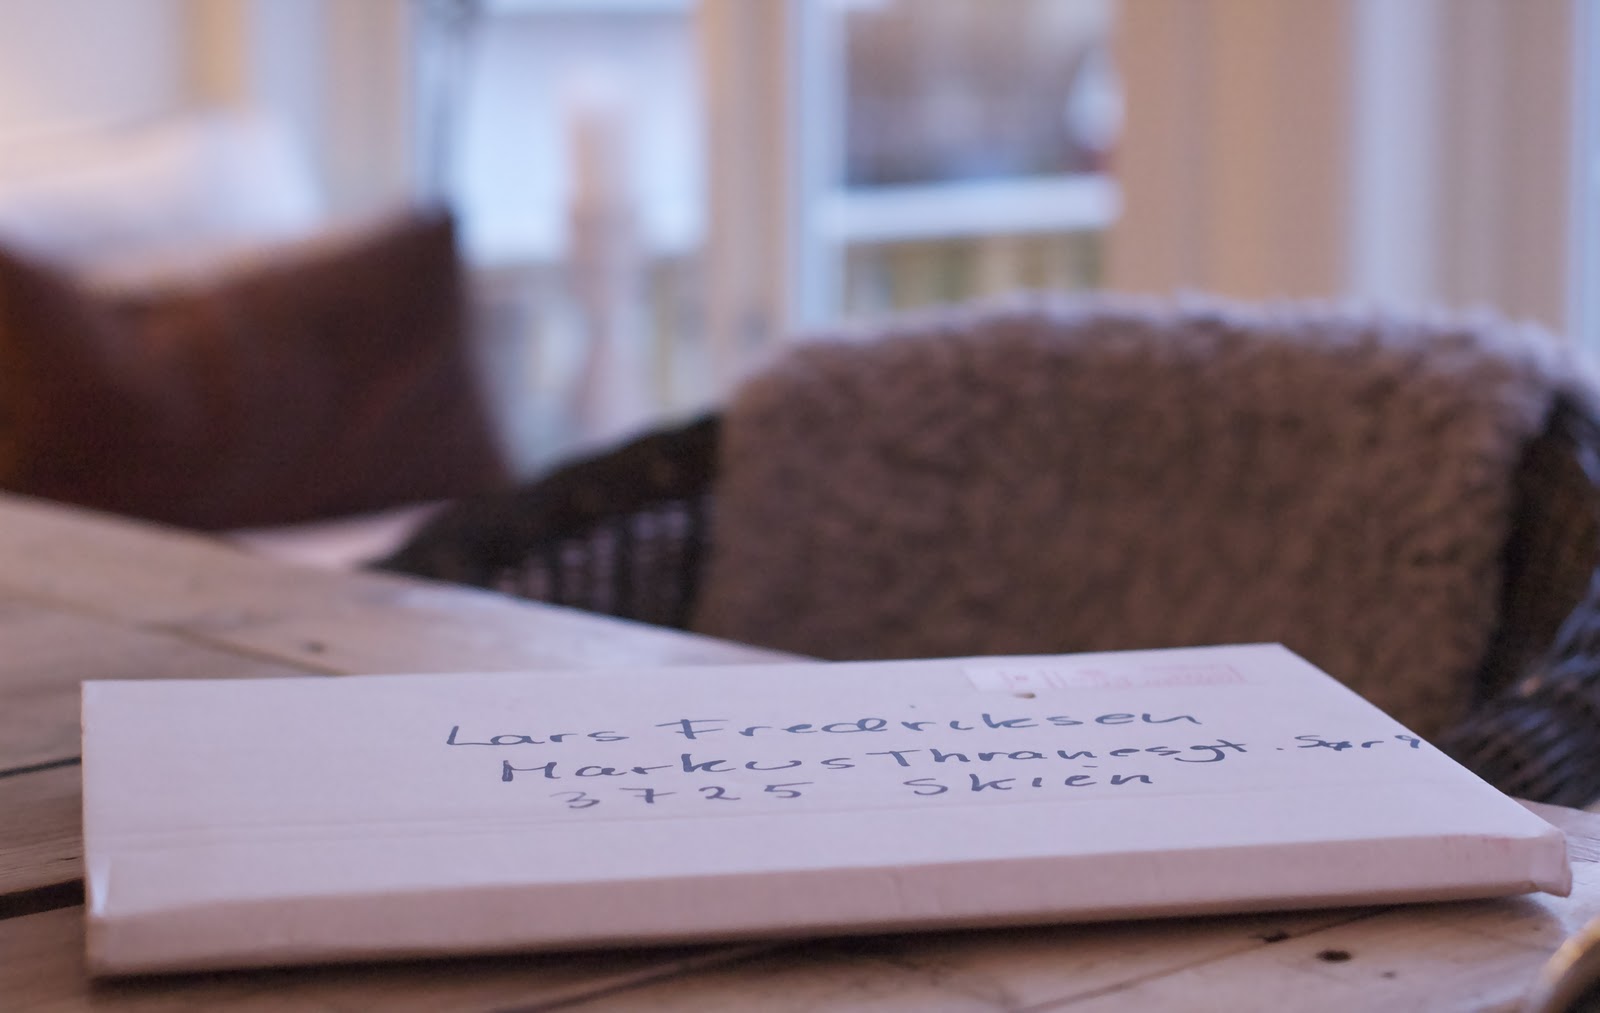 Lars Fredriksen
Markus Thranesgt.
3725 Skien